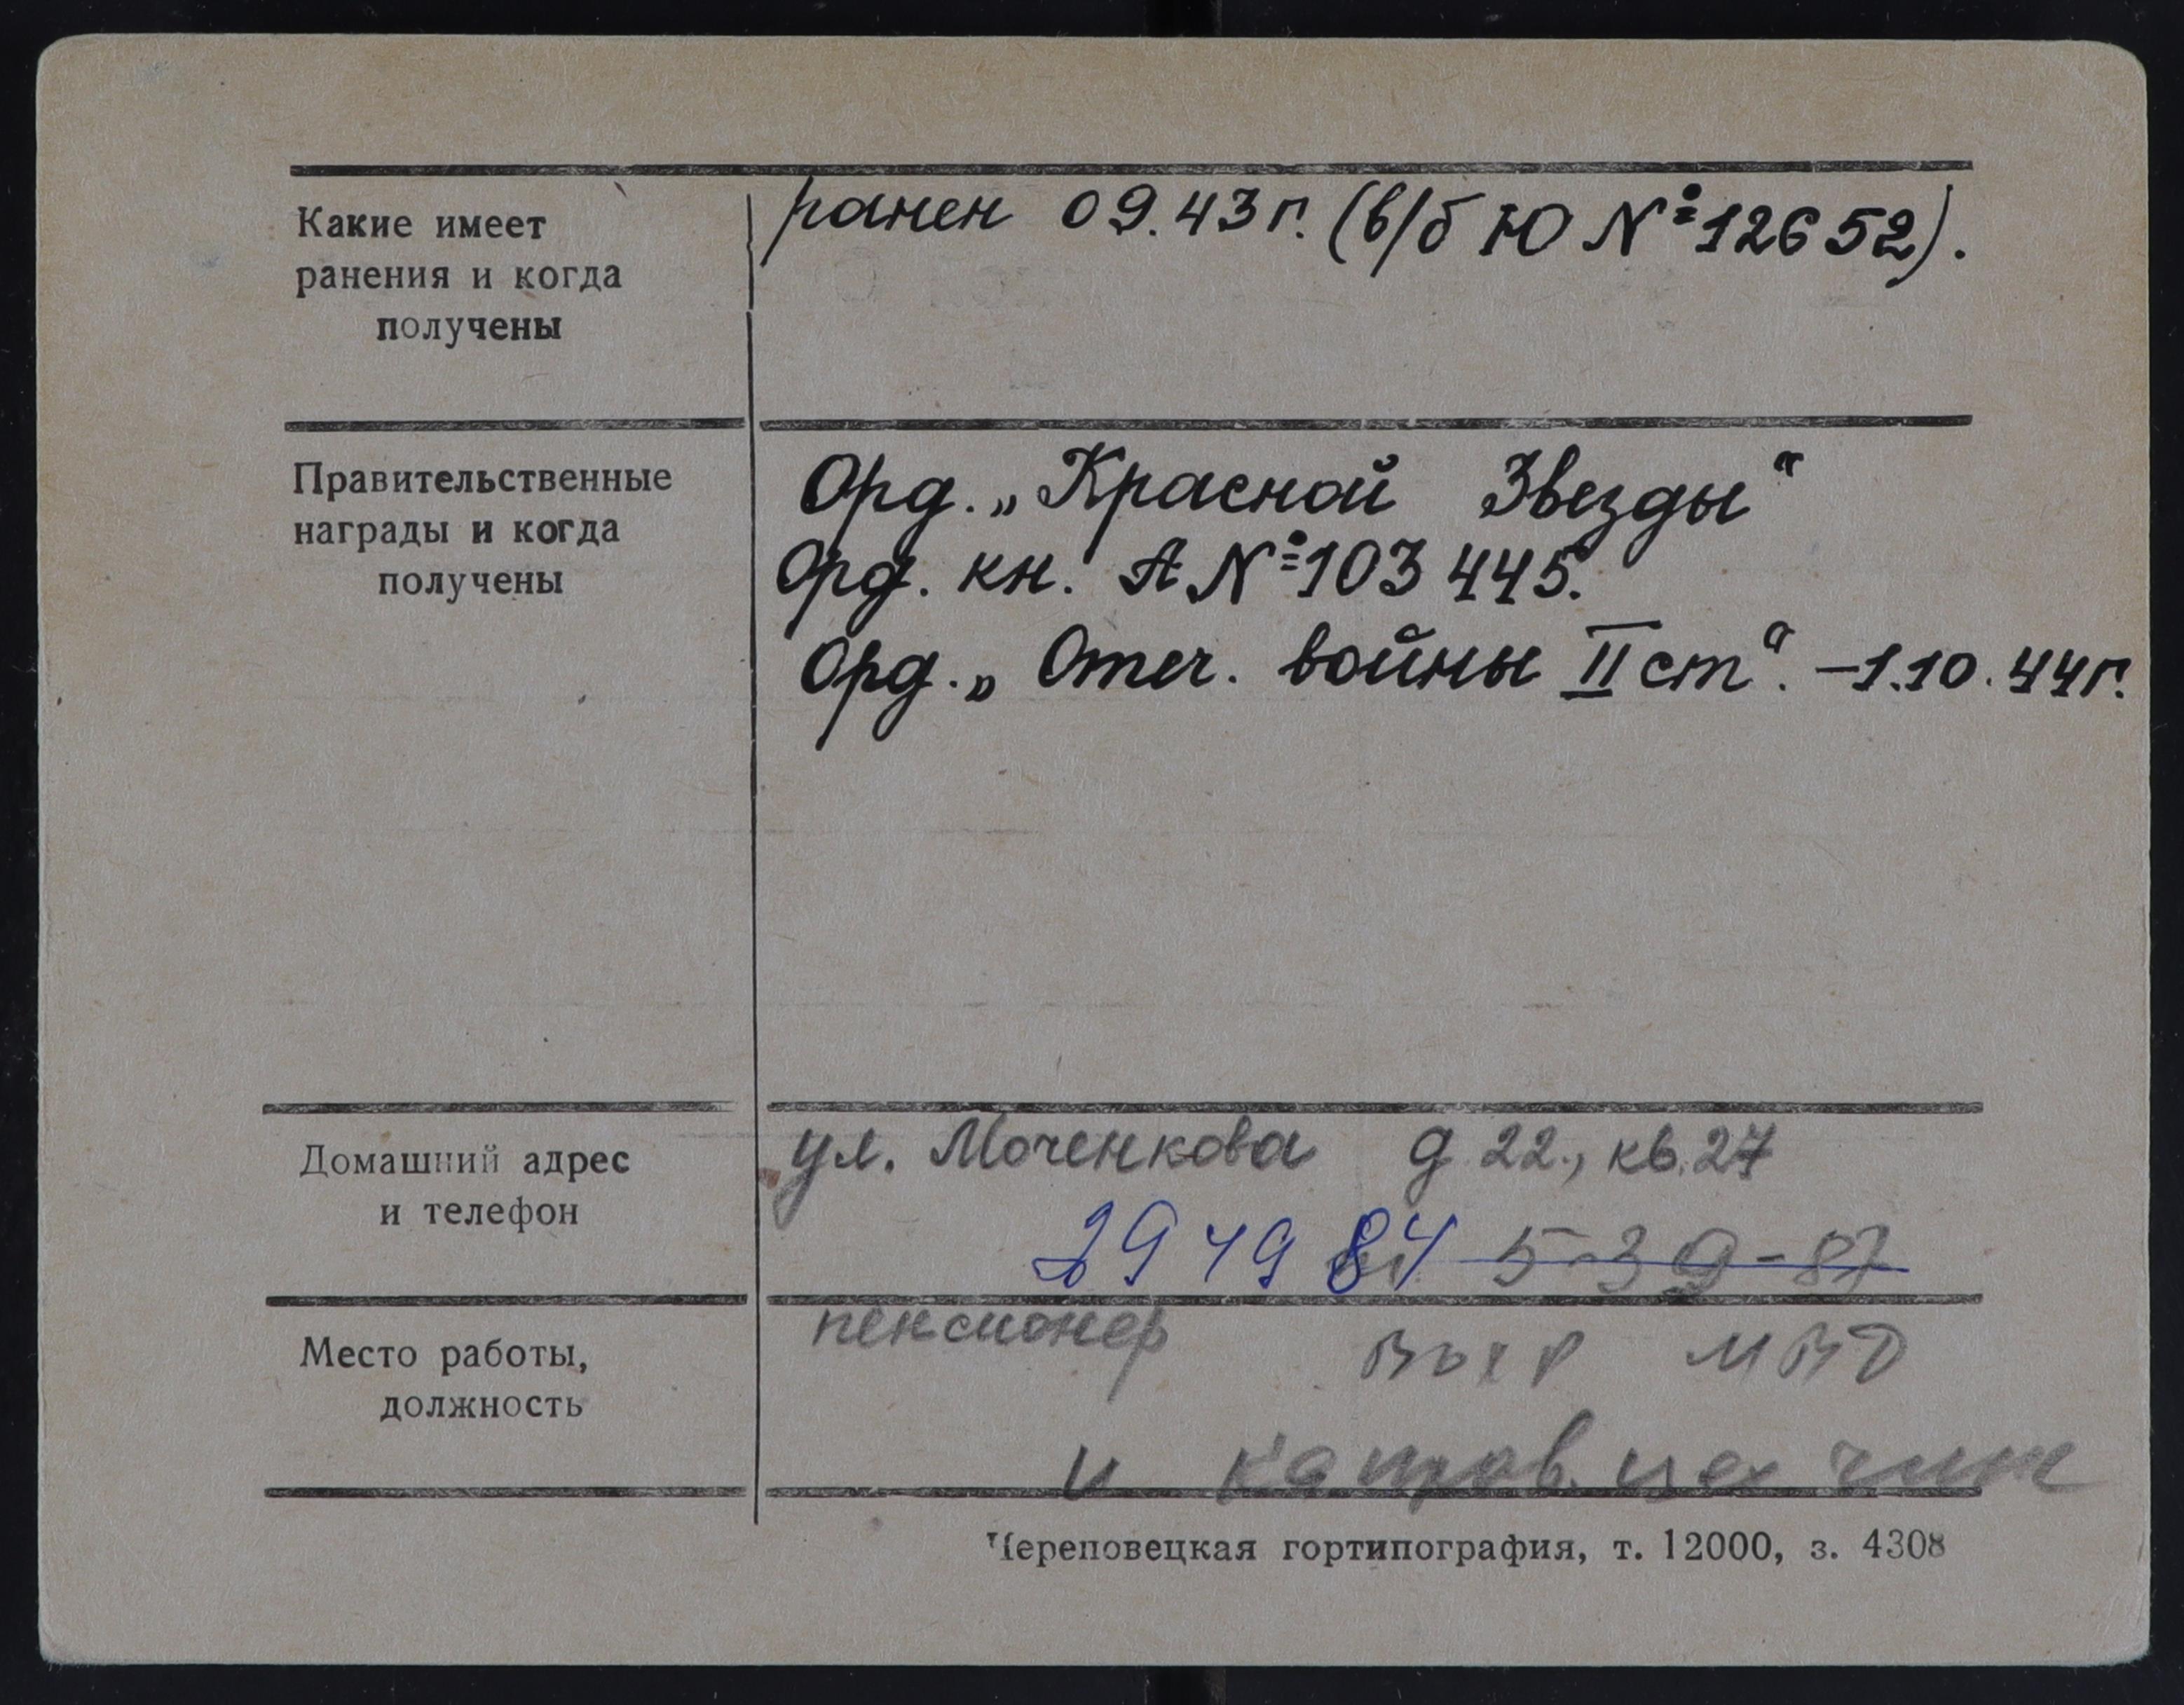 Какие имеет
ранения и когда
получены
ранен 09.43 г. (в/б Ю №12652).
Правительственные
награды и когда
получены
Орд. „Красной Звезды"
Орд. кн. А №103445.
Орд. „Отеч. войны II ст". – 1.10.44 г.
Домашний адрес
и телефон
ул. Моченкова д 22., кв. 27
294984 5-39-87
Место работы,
должность
пенсионер
ВОХР МВД
и
Череповецкая гортипография, т. 12000, з. 4308